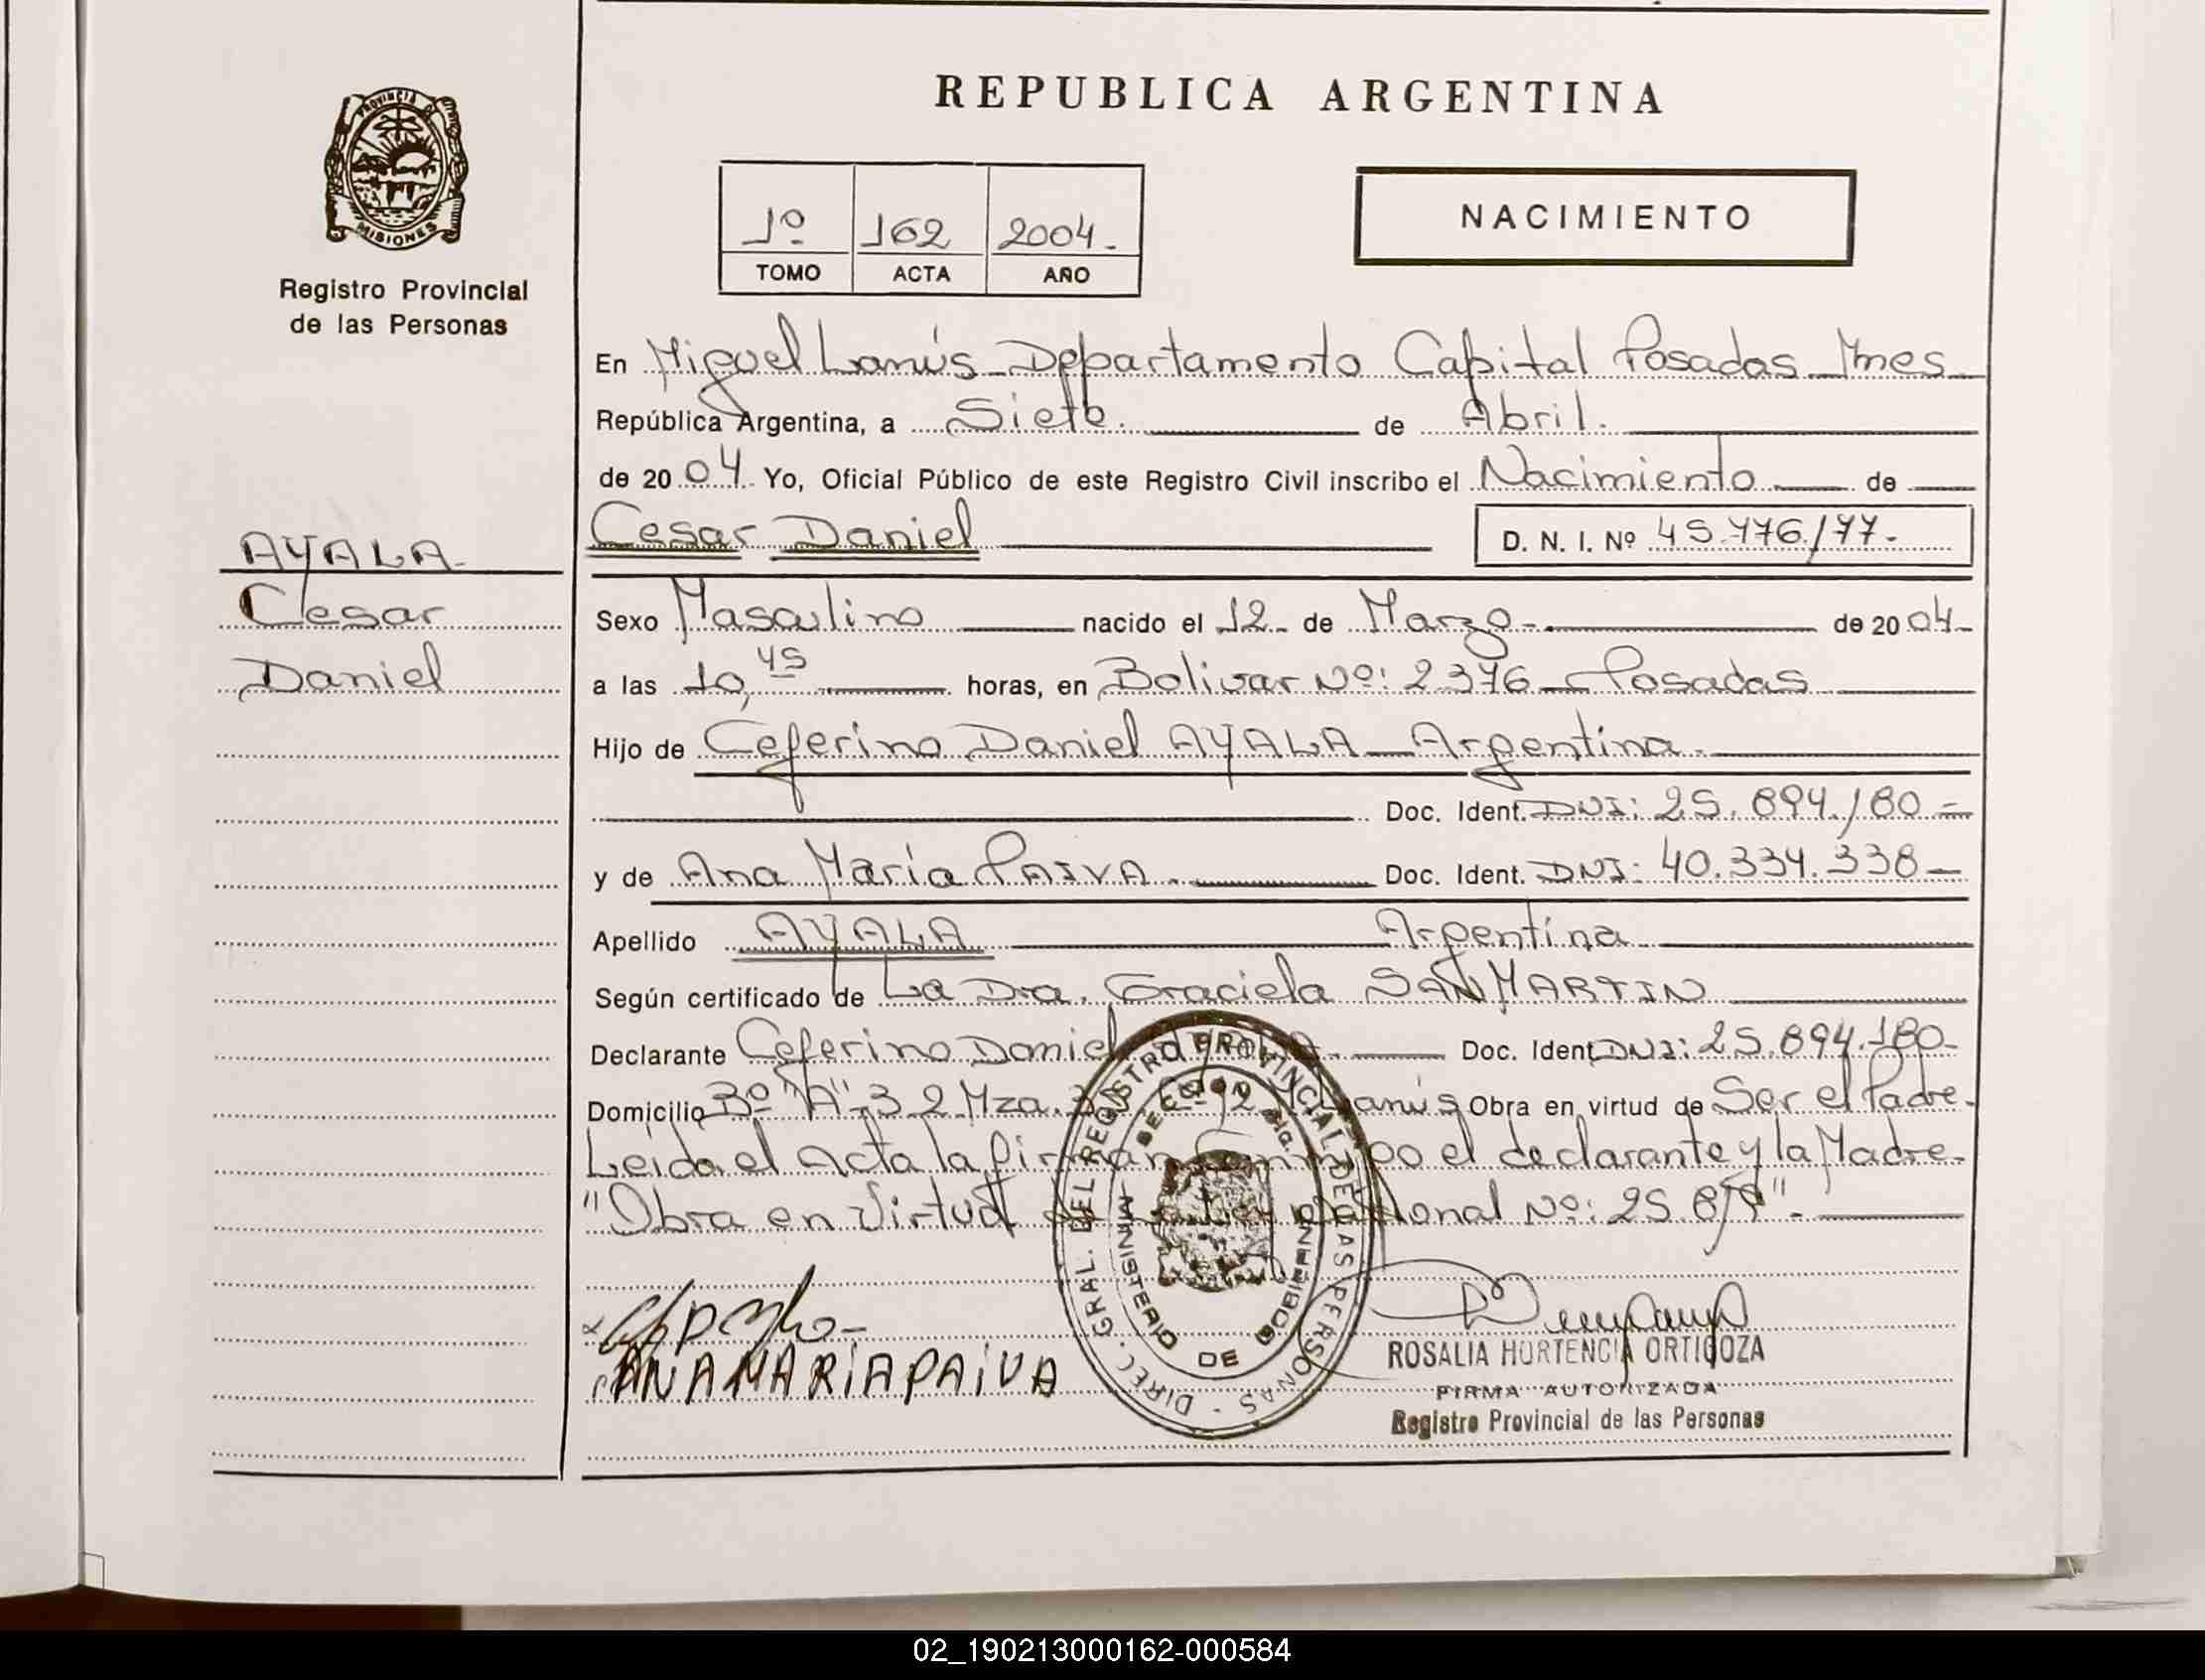 REPUBLICA ARGENTINA
PROVINCIA DE
MISIONES
Registro Provincial
de las Personas
1º 162 2004.
TOMO ACTA AÑO
NACIMIENTO
En Miguel Lanús - Departamento Capital Posadas Mnes
República Argentina, a Siete. de Abril.
de 2004. Yo, Oficial Público de este Registro Civil inscribo el Nacimiento de
Cesar Daniel
D. N. I. Nº 45.776.177.-
AYALA
Cesar
Daniel
Sexo Masculino nacido el 12 de Marzo de 2004
a las 10,45 horas, en Bolivar Nº: 2376 - Posadas
Hijo de Ceferino Daniel AYALA - Argentina.
Doc. Ident. DNI: 25.894.180.=
y de Ana María PAIVA. Doc. Ident. DNI: 40.334.338
Apellido AYALA Argentina
Según certificado de La Dra. Graciela SAN MARTIN
Declarante Ceferino Daniel Doc. Ident. DNI: 25.894.180
Domicilio Bº "A" 3 2 Mza. Lanús Obra en virtud de Ser el Padre.
Leida el acta la firman el declarante y la Madre.
"Obra en Virtud Nº: 25.
DIREC. GRAL. DEL REGISTRO PROVINCIAL DE LAS PERSONAS
MINISTERIO DE GOBIERNO
ANA MARIA PAIVA
ROSALIA HORTENCIA ORTIGOZA
FIRMA AUTORIZADA
Registro Provincial de las Personas
02_190213000162-000584